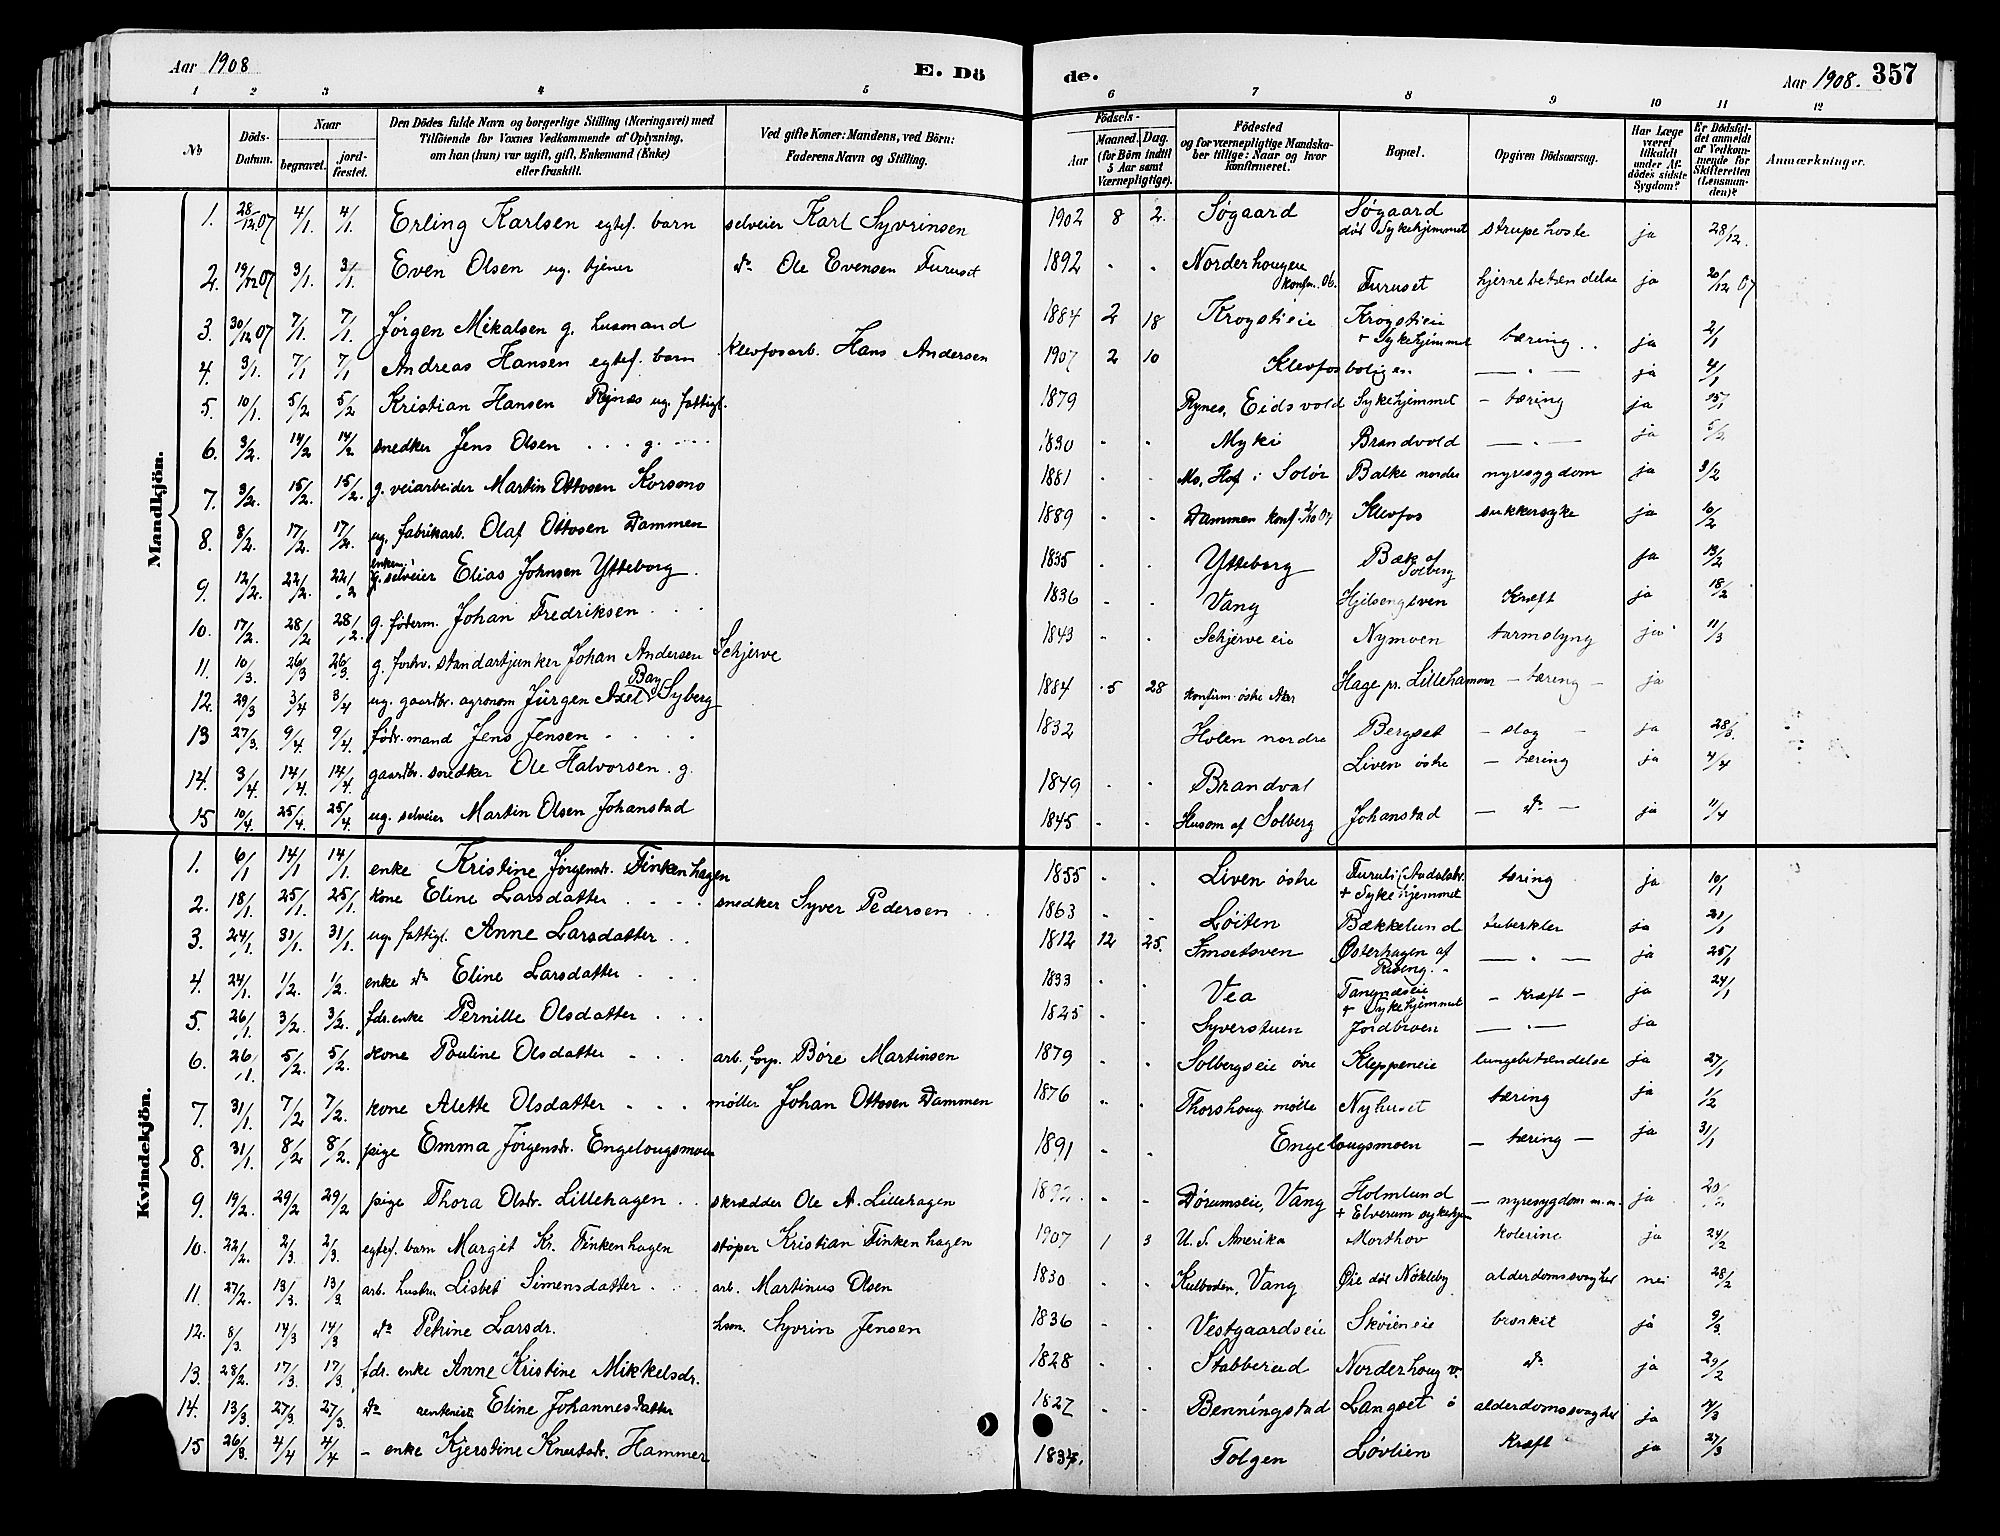 Aar 1908
E. Dö
de.
Aar 1908.
357
1 2 3 4 5 6 7 8 9 10 11 12
No
Döds-Datum.
Naar
begravet.
jord-fæstet.
Den Dödes fulde Navn og borgerlige Stilling (Næringsvei) med
Tilföiende for Voxnes Vedkommende af Oplysning,
om han (hun) var ugift, gift, Enkemand (Enke)
eller fraskilt.
Ved gifte Koner: Mandens, ved Börn:
Faderens Navn og Stilling.
Födsels-
Aar
Maaned. Dag.
(for Börn indtil
5 Aar samt
Værnepligtige).
Födested
og for værnepligtige Mandska-
ber tillige: Naar og hvor
konfirmeret.
Bopæl.
Opgiven Dödsaarsag.
Har Læge
været
tilkaldt
under Af-
dödes sidste
Sygdom?
Er Dödsfal-
det anmeldt
af Vedkom-
mende for
Skifteretten
(Lensman-
den)?
Anmærkninger.
Mandkjön.
1. 28/12 07 4/1. 4/1. Erling Karlsen egtef. barn selveier Karl Syvrinsen 1902 8 2. Søgaard Søgaard død Sykehjemmet strupehoste ja 28/12.
2. 19/12 07 3/1. 3/1. Even Olsen ug. tjener do Ole Evensen Furuset 1892 . . Norderhougeie konfm. 06. Furuset hjernebetændelse ja 20/12 07
3. 30/12 07 7/1. 7/1. Jørgen Mikalsen g. husmand 1884 2 18 Krogstieie Krogstieie + Sykehjemmet tæring ja 2/1
4. 3/1. 7/1 7/1 Andreas Hansen egtef. barn Klevfosarb. Hans Andersen 1907 2 10 Klevfosboliger. — " — ja 4/1
5. 10/1. 5/2 5/2 Kristian Hansen Rynæs ug. fattigl. 1879 Rynes, Eidsvold Sykehjemmet - tæring ja 15/1
6. 3/2. 14/2 14/2 snedker Jens Olsen . . . g. 1830 . . Myki Brandvold — " — ja 5/2.
7. 3/2. 15/2. 15/2. g. veiarbeider Martin Ottosen Korsmo 1881 . . Mo, Hof i Solør Balke nordre nyresygdom ja 3/2
8. 8/2. 17/2. 17/2. ug. fabrikarb. Olaf Ottosen Dammen 1889 . . Dammen konf 04 Klevfos sukkersyke ja 10/2
9. 12/2. 22/2. 22/2 enkem. g. selveier Elias Johnsen Ytteborg. 1835 . . Ytteborg Bæk af Solberg ja 13/2
10. 17/2. 28/2 28/2. g. føderm. Johan Fredriksen . . . 1836 . . Vang Kræft ja 18/2
11. 10/3. 26/3 26/3. g. forhv. standartjunker Johan Andersen Schjerve 1843 . . Schjerve eie Nymoen tarmslyng ja 11/3
12. 29/3 3/4 3/4 ug. gaardbr. agronom Jürgen Axel Bay Syberg 1884 5 28 konfirm. østre Aker Hage pr. Lillehammer - tæring - ja
13 27/3. 9/4. 9/4. født. mand Jens Jensen . . . . 1832 Holen nordre Bergset - slag - ja 28/3.
14. 3/4. 14/4. 14/4. gaardbr. snedker Ole Halvorsen g. 1849 . . Brandval Liven østre - tæring ja 4/4
15 10/4. 25/4. 25/4. ug. selveier Martin Olsen Johanstad 1845 . . Husom af Solberg Johanstad - do - ja 11/4
Kvindekjön.
1. 6/1 14/1 14/1 enke Kristine Jørgensdr. Finkenhagen 1855 . . Liven østre + Sykehjemmet tæring ja 10/1
2. 18/1 25/1. 25/1. kone Eline Larsdatter . . . . snedker Syver Pedersen 1863 . . Løiten Bækkelund tuberkler ja 21/1
3. 24/1. 31/1. 31/1. ug. fattigl. Anne Larsdatter . . 1812 12 25. Smoetsven Østerhagen af — " — ja 25/1
4. 24/1. 1/2. 1/2. enke do Eline Larsdatter . . . 1833 . . Vea Tangnæseie + Sykehjemmet - Kræft - ja 24/1
5. 26/1. 3/2. 3/2. fdr. enke Pernille Olsdatter . . . 1825 . . Syverstuen Jordbroen — " — ja
6. 26/1. 5/2. 5/2. kone Pauline Olsdatter . . . arb., forp. Børe Martinsen 1879 . . Solbergseie øvre Kleppeneie lungebetændelse ja 27/1
7. 31/1. 7/2 7/2. kone Alette Olsdatter . . . møller Johan Ottosen Dammen 1876 . . Thorshoug mølle Nyhuset tæring ja 1/2
8. 31/1. 8/2 8/2. pige Emma Jørgensdr. Engelougsmoen 1891 . . Engelougsmoen - tæring - ja 31/1
9 19/2. 29/2 29/2 pige Thora Olsdr. Lillehagen . . skrædder Ole A. Lillehagen . . Dørumseie, Vang Holmlund + Elverum sykehjem - nyresygdom m.m. ja
10. 22/2. 2/3. 2/3. egtef. barn Margit Kr. Finkenhagen støper Kristian Finkenhagen 1907 1 3 U. S. Amerika Morthov kolerine ja 24/2
11. 27/2. 13/3. 13/3 arb. hustru Lisbet Simensdatter . . . arb. Martinus Olsen 1830 . . Kulboden, Vang Øie død Nøkleby alderdomssvaghed nei 28/2
12. 8/3. 14/3 14/3 do Petrine Larsdr. hsm. Syvrin Jensen 1836 . . Vestgaardseie Skøieneie bronkit ja 9/3.
13. 28/2. 17/3. 17/3. fdr. enke Anne Kristine Mikkelsdr. 1828 . . Stabberud Norderhoug v. do ja 29/2
14. 13/3. 27/3. 27/3. do rentenist Eline Johannesdatter 1827 . . Benningstad Langset ø alderdomssvaghed ja
15 26/3. 4/4 4/4 - enke Kjerstine Knutsdr. Hammer 1834. Tolgen Løvlien Kræft ja 27/3